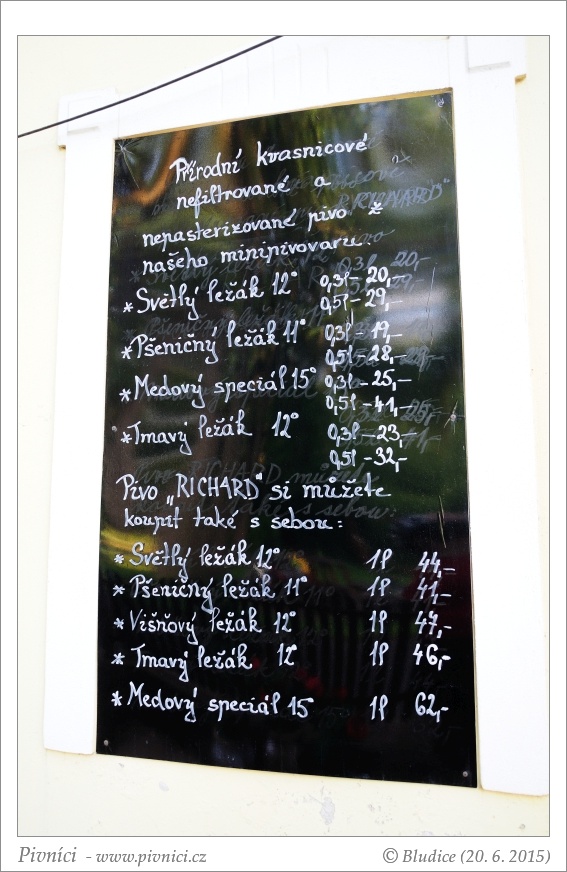 Přírodní kvasnicové
nefiltrované a
nepasterizované pivo z
našeho minipivovaru
* Světlý ležák 12° 0,3l - 20,-
0,5l - 29,-
* Pšeničný ležák 11° 0,3l - 19,-
0,5l - 28,-
* Medový speciál 15° 0,3l - 25,-
0,5l - 41,-
* Tmavý ležák 12° 0,3l - 23,-
0,5l - 32,-
Pivo „RICHARD" si můžete
koupit také s sebou:
* Světlý ležák 12° 1l 44,-
* Pšeničný ležák 11° 1l 41,-
* Višňový ležák 12° 1l 47,-
* Tmavý ležák 12° 1l 46,-
* Medový speciál 15° 1l 62,-
Pivníci - www.pivnici.cz
© Bludice (20. 6. 2015)